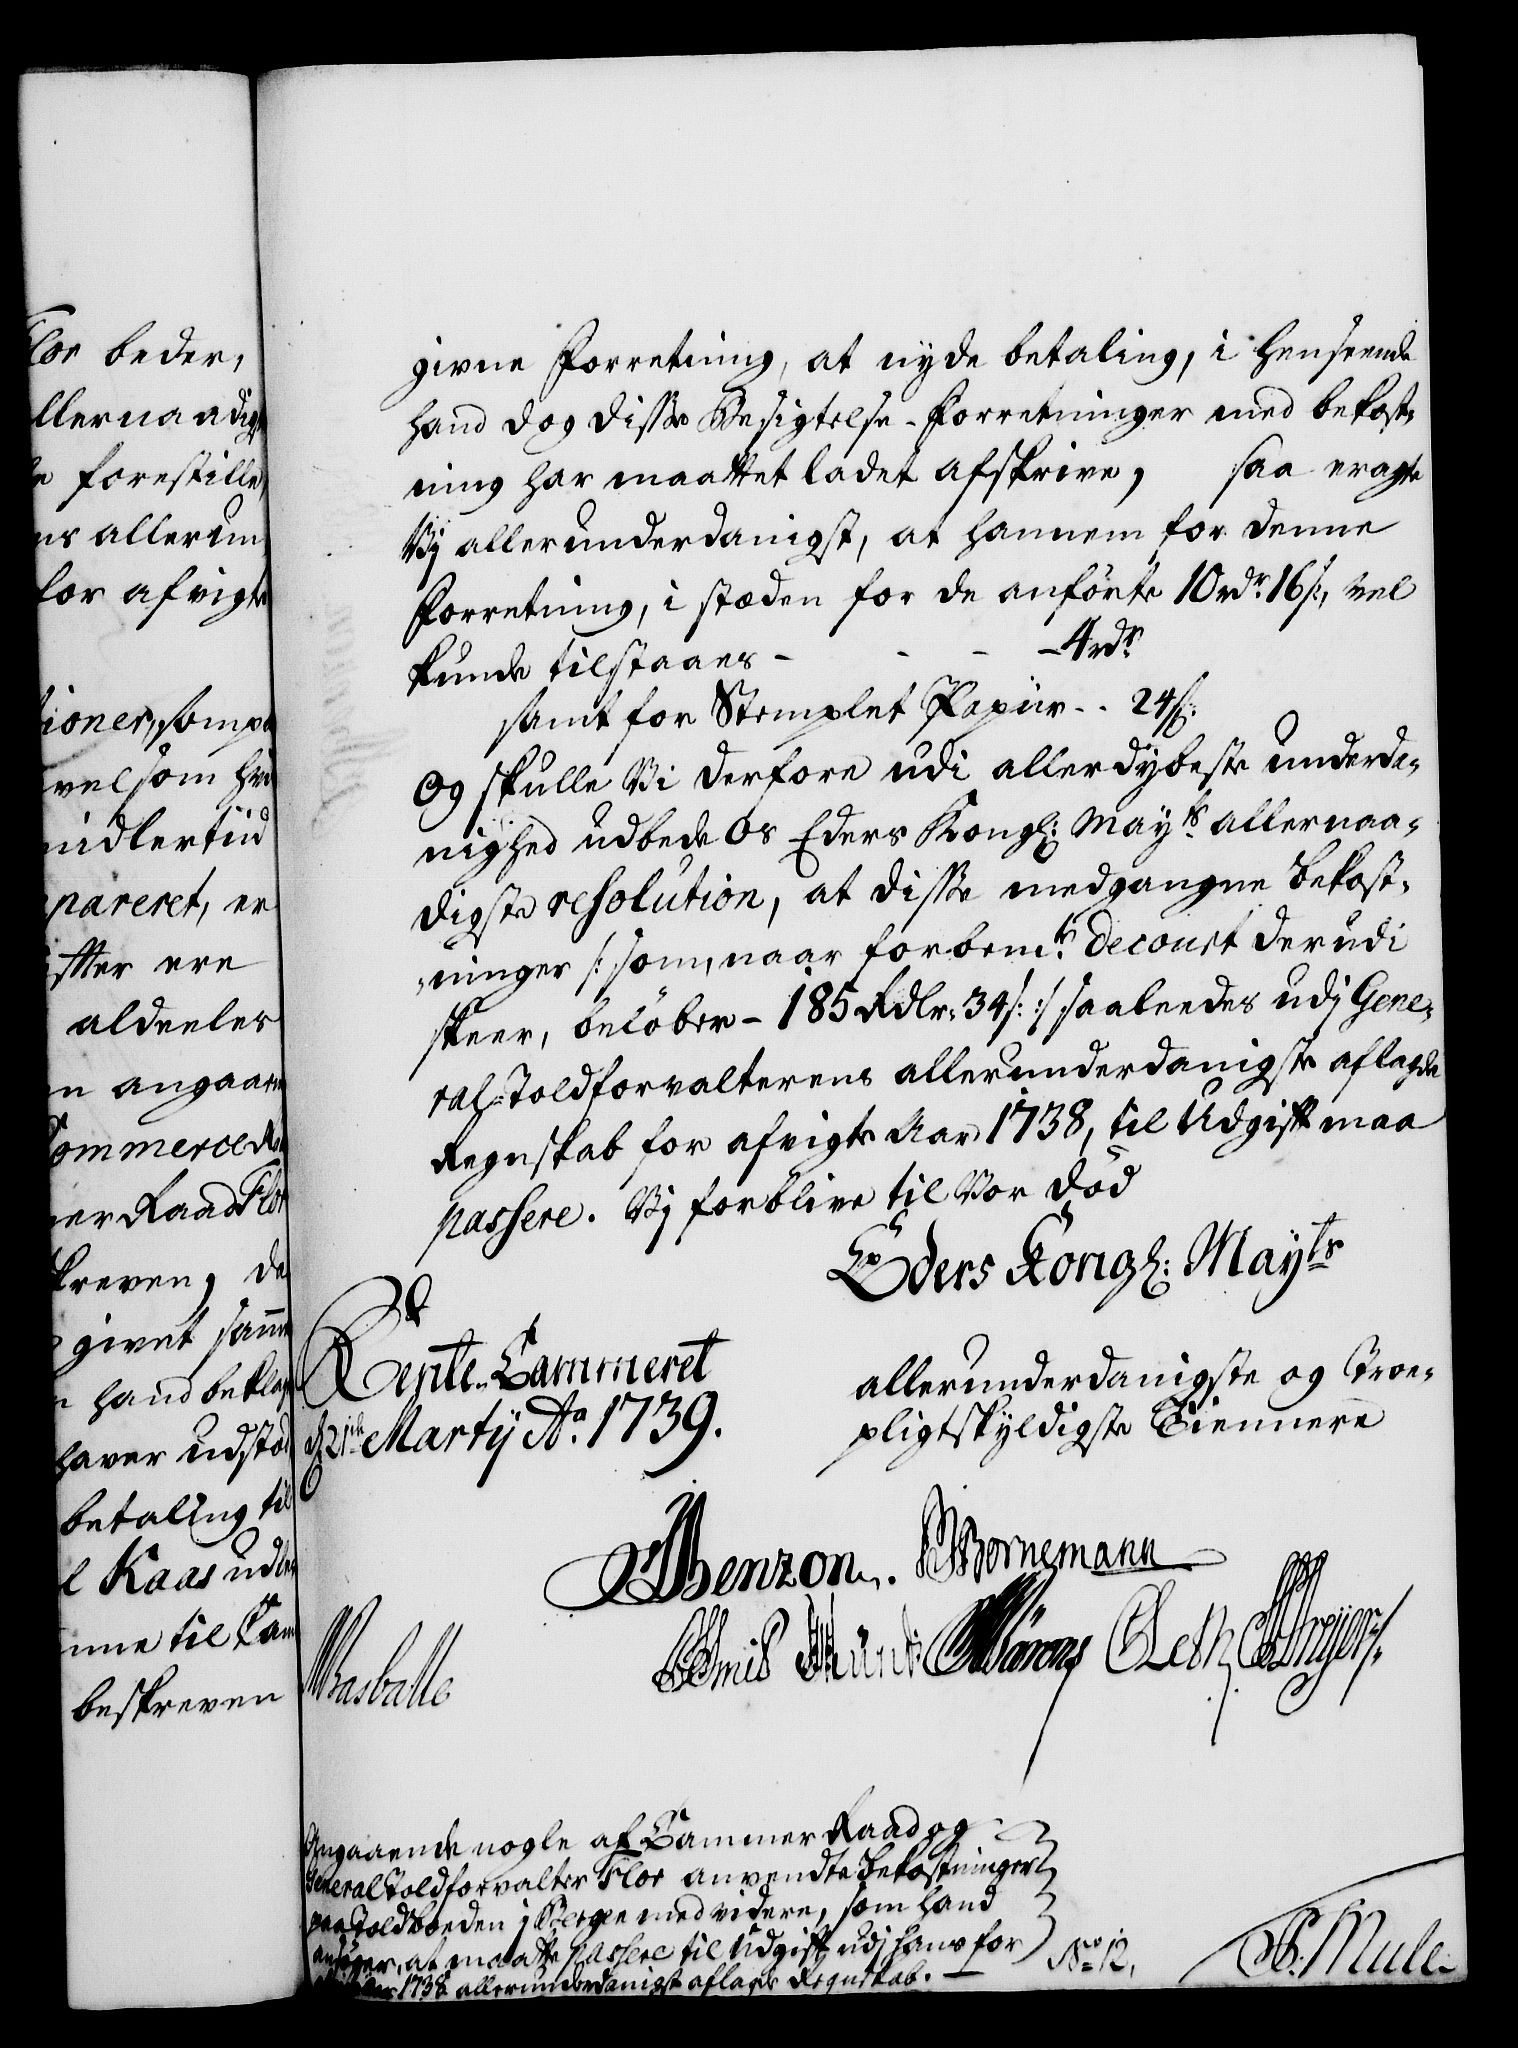 Flor beder,
allernaadigst
forestille,
allerun
for afvigte
tioner, som paa
vel som hva
midlertiid
pareret, er
ere
aldeeles
angaaen
Commerce Ra
mer Raad Flor
skreven, de
givet samme
hand beklag
haver udstæd
betaling til
Kaas udla
til Cam
beskreven
givne Forretning, at nyde betaling, i henseende
hand dog disse Besigtelse-Forretninger med bekost-
ning har maattet ladet afskrive, saa eragte
Vj allerunderdanigst, at hannem for denne
Forretning, i stæden for de anförte 10 rdr. 16 s:, vel
kunde tilstaaes - - - - 4 rdr.
samt for Stemplet Papiir - - 24 s:
Og skulle Vi derfore udi allerdybeste underda-
nighed udbede Os Eders Kongl: Mayts allernaa-
digste resolution, at disse medgangne Bekost-
ninger /: som, naar forbemte Decourt derudi
skeer, belöber - 185 Rdlr: 34 s: :/ saaleedes udj Gene-
ral-Toldforvalterens allerunderdanigste aflagde
Regnskab for afvigte Aar 1738, til Udgift maa
passere. Vj forblive til Vor Död
Eders Kongl: Mayts
Rente-Cammeret
d 21de Martij Ao. 1739.
allerunderdanigste og Troe-
pligtskyldigste Tiennere
Benzon. Bornemann
Basballe
Dreyer
Angaaende nogle af Cammer Raad og
General Toldforvalter Flor anvendte Bekostninger
paa Toldboeden j Bergen med videre, som hand
ansöger, at maatte passere til Udgift udj hans for
1738 allerunderdanigst aflagde Regnskab. -
No 12.
Mule.